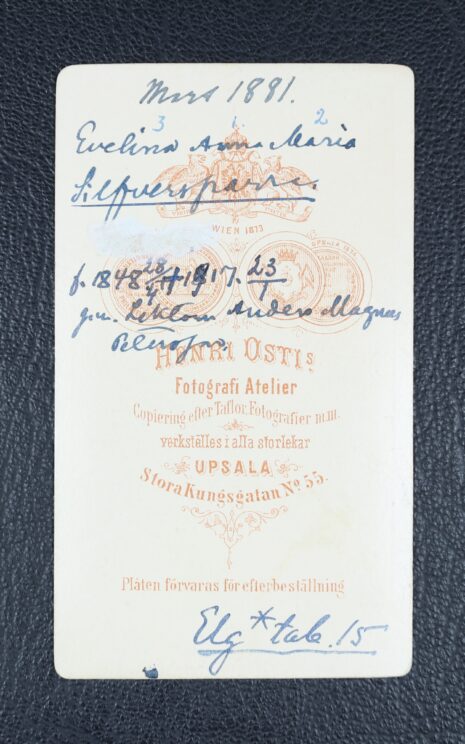 Mars 1881.
3 1. 2
Evelina Anna Maria
Silfversparre.
WIEN 1873
f. 1848 28/4 † 1917. 23/1
g.m. Lektorn Anders Magnus
HENRI OSTIS
Fotografi Atelier
Copiering efter Taflor, Fotografier m.m.
verkställes i alla storlekar
UPSALA
Stora Kungsgatan No 55.
Plåten förvaras för efterbeställning
Elg * tab. 15